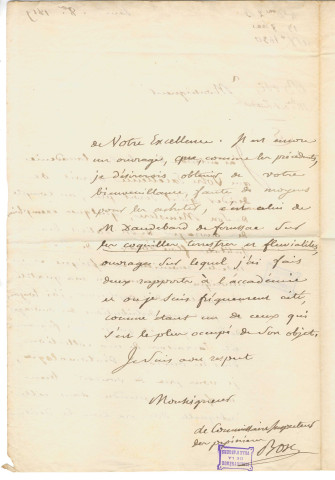 de Votre Excellence. Il est encore
un ouvrages, que, comme les précédents,
je désirerois obtenir de votre
bienveillance, faute de moyens
pour les acheter, c'est celui de
M Daudebard de ferussac Sur
les coquilles terrestres et fluviatiles,
ouvrages sur lequel j'ai fais
deux rapports à l'accadémie
et ou je suis fréquemment cité,
comme étant un de ceux qui
s'est le plus occupé de son objet.
Je suis avec respect
Monseigneur
Le Commissaire Inspecteur
des pepinieres
Bosc